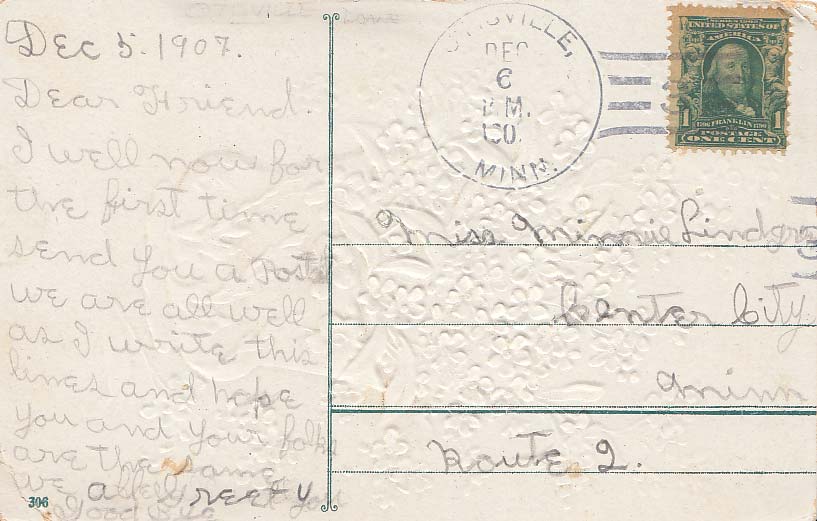 Dec 5. 1907.
Dear Friend.
I well now for
the first time
send you a Post
we are all well
as I write this
lines and hope
you and your folks
are the same
we all greet you
Good Bye
306
VILLE,
DEC
6
P.M.
190
MINN.
SERIES 1902
UNITED STATES OF
AMERICA
1706 FRANKLIN 1790
1 POSTAGE 1
ONE CENT
Miss Minnie Lindgr
Center City
Minn
Route 2.